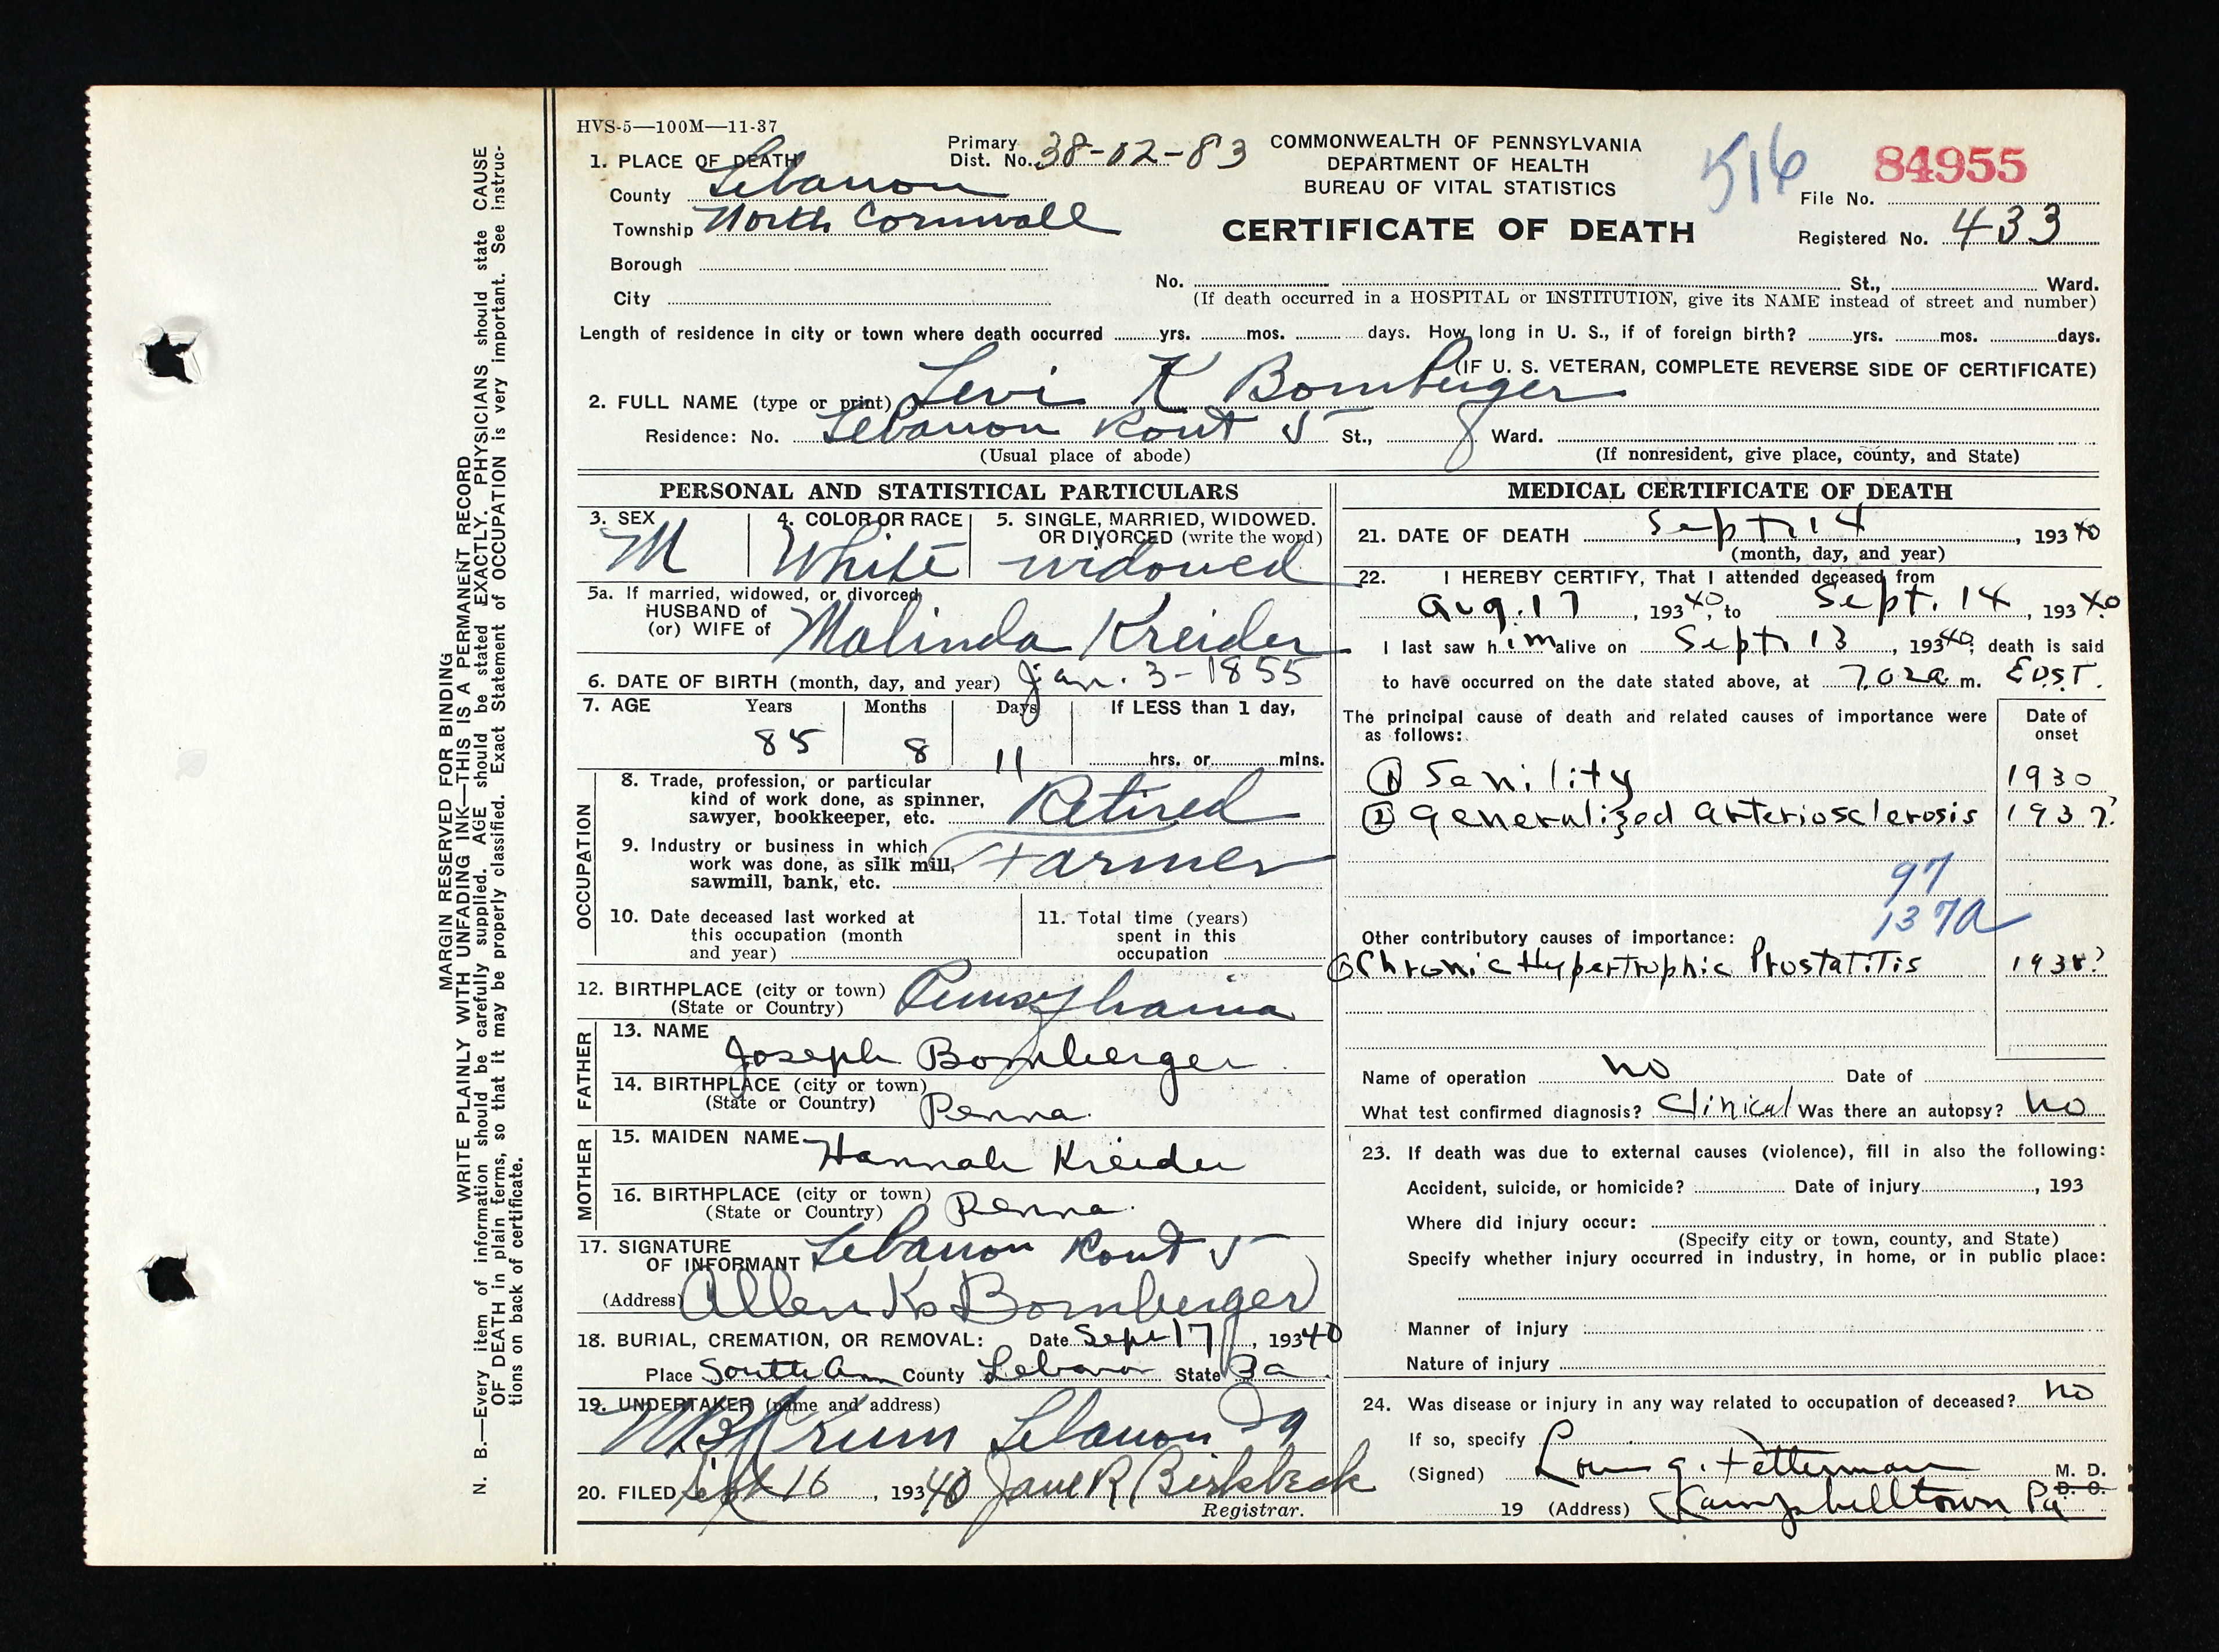 HVS-5—100M—11-37
1. PLACE OF DEATH
County Lebanon
Township North Cornwall
Borough
City
Primary
Dist. No. 38-02-83
COMMONWEALTH OF PENNSYLVANIA
DEPARTMENT OF HEALTH
BUREAU OF VITAL STATISTICS
CERTIFICATE OF DEATH
516
84955
File No.
Registered No. 433
No. St., Ward.
(If death occurred in a HOSPITAL or INSTITUTION, give its NAME instead of street and number)
Length of residence in city or town where death occurred yrs. mos. days. How long in U. S., if of foreign birth? yrs. mos. days.
(IF U. S. VETERAN, COMPLETE REVERSE SIDE OF CERTIFICATE)
2. FULL NAME (type or print) Levi K Bomberger
Residence: No. Lebanon Rout 5 St., Ward.
(Usual place of abode)
(If nonresident, give place, county, and State)
PERSONAL AND STATISTICAL PARTICULARS
3. SEX
M
4. COLOR OR RACE
White
5. SINGLE, MARRIED, WIDOWED.
OR DIVORCED (write the word)
widowed
5a. If married, widowed, or divorced
HUSBAND of
(or) WIFE of Malinda Kreider
6. DATE OF BIRTH (month, day, and year) Jan. 3-1855
7. AGE Years Months Days If LESS than 1 day,
85 8 11 hrs. or mins.
OCCUPATION
8. Trade, profession, or particular
kind of work done, as spinner,
sawyer, bookkeeper, etc. Retired
9. Industry or business in which
work was done, as silk mill,
sawmill, bank, etc. Farmer
10. Date deceased last worked at
this occupation (month
and year)
11. Total time (years)
spent in this
occupation
12. BIRTHPLACE (city or town)
(State or Country) Pennsylvania
FATHER
13. NAME
Joseph Bomberger
14. BIRTHPLACE (city or town)
(State or Country) Penna.
MOTHER
15. MAIDEN NAME
Hannah Kreider
16. BIRTHPLACE (city or town)
(State or Country) Penna.
17. SIGNATURE
OF INFORMANT Lebanon Rout 5
(Address) Allen K. Bomberger
18. BURIAL, CREMATION, OR REMOVAL: Date Sept 17, 19340
Place South Ann County Lebanon State Pa
19. UNDERTAKER (name and address)
Krum Lebanon Pa
20. FILED Sept 16, 19340 Jane R Birkbeck
Registrar.
MEDICAL CERTIFICATE OF DEATH
21. DATE OF DEATH Sept. 14, 19340
(month, day, and year)
22. I HEREBY CERTIFY, That I attended deceased from
Aug. 17, 19340, to Sept. 14, 19340
I last saw him alive on Sept. 13, 19340; death is said
to have occurred on the date stated above, at 7.02a m. E.D.S.T.
The principal cause of death and related causes of importance were
as follows:
Date of
onset
① Senility 1930
② Generalized Arteriosclerosis 1937?
97
137a
Other contributory causes of importance:
③ Chronic Hypertrophic Prostatitis 1938?
Name of operation no Date of
What test confirmed diagnosis? Clinical Was there an autopsy? no
23. If death was due to external causes (violence), fill in also the following:
Accident, suicide, or homicide? Date of injury , 193
Where did injury occur:
(Specify city or town, county, and State)
Specify whether injury occurred in industry, in home, or in public place:
Manner of injury
Nature of injury
24. Was disease or injury in any way related to occupation of deceased? no
If so, specify
(Signed) Fetterman M. D.
D. O.
19 (Address) Kampbelltown Pa
MARGIN RESERVED FOR BINDING
WRITE PLAINLY WITH UNFADING INK—THIS IS A PERMANENT RECORD
N. B.—Every item of information should be carefully supplied. AGE should be stated EXACTLY. PHYSICIANS should state CAUSE
OF DEATH in plain terms, so that it may be properly classified. Exact Statement of OCCUPATION is very important. See instruc-
tions on back of certificate.